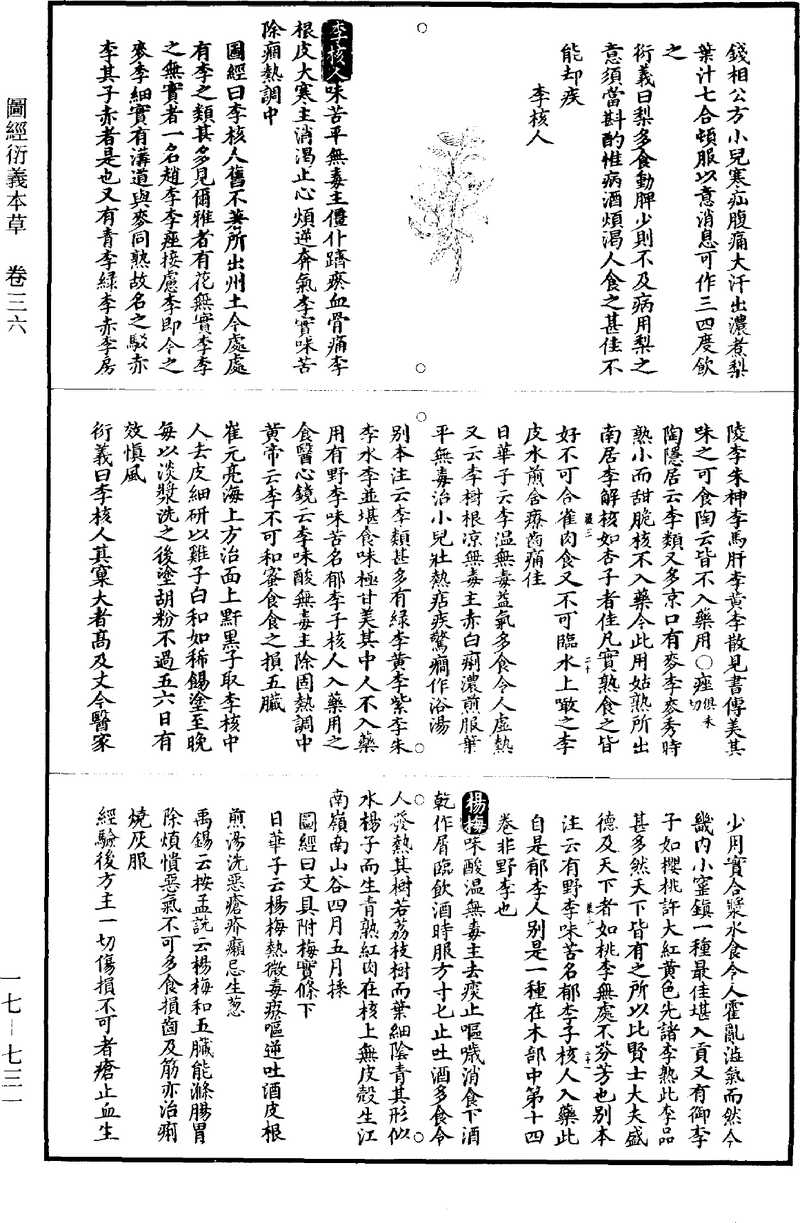 錢相公方小兒寒疝腹痛大汗出濃煮梨
葉汁七合頓服以意消息可作三四度飲
之
衍義曰梨多食動脾少則不及病用梨之
意須當斟酌惟病酒煩渴人食之甚佳不
能却疾
李核人
李核人味苦平無毒主僵仆躋瘀血骨痛李
根皮大寒主消渴止心煩逆奔氣李實味苦
除痼熱調中
圖經曰李核人舊不著所出州土今處處
有李之類甚多見爾雅者有花無實李李
之無實者一名趙李李痤接慮李即今之
麥李細實有溝道與麥同熟故名之駁赤
李其子赤者是也又有青李綠李赤李房
陵李朱神李馬肝李黃李散見書傳美其
味之可食陶云皆不入藥用○痤俱禾切
陶隱居云李類又多京口有麥李麥秀時
熟小而甜脆核不入藥今此用姑熟所出
南居李解核如杏子者佳凡實熟食之皆
好不可合雀肉食又不可臨水上噉之李
皮水煎含療齒痛佳
日華子云李溫無毒益氣多食令人虛熱
又云李樹根涼無毒主赤白痢濃煎服葉
平無毒治小兒壯熱痁疾驚癇作浴湯
別本注云李類甚多有綠李黃李紫李朱
李水李並堪食味極甘美其中人不入藥
用有野李味苦名郁李子核人入藥用之
食醫心鏡云李味酸無毒主除固熱調中
黃帝云李不可和蜜食食之損五臟
崔元亮海上方治面上䵟黑子取李核中
人去皮細研以雞子白和如稀餳塗至晚
每以淡漿洗之後塗胡粉不過五六日有
效慎風
衍義曰李核人其窠大者高及丈今醫家
少用實合漿水食令人霍亂澁氣而然今
畿內小窑鎮一種最佳堪入貢又有御李
子如櫻桃許大紅黃色先諸李熟此李品
甚多然天下皆有之所以比賢士大夫盛
德及天下者如桃李無處不芬芳也別本
注云有野李味苦名郁李子核人入藥此
自是郁李人別是一種在木部中第十四
卷非野李也
楊梅味酸溫無毒主去痰止嘔噦消食下酒
乾作屑臨飲酒時服方寸匕止吐酒多食令
人發熱其樹若荔枝樹而葉細陰青其形似
水楊子而生青熟紅肉在核上無皮殼生江
南嶺南山谷四月五月採
圖經曰文具附梅實條下
日華子云楊梅熱微毒療嘔逆吐酒皮根
煎湯洗惡瘡疥癩忌生葱
禹錫云按孟詵云楊梅和五臟能滌腸胃
除煩憒惡氣不可多食損齒及筋亦治痢
燒灰服
經驗後方主一切傷損不可者瘡止血生
圖經衍義本草　卷三六
一七—七三一